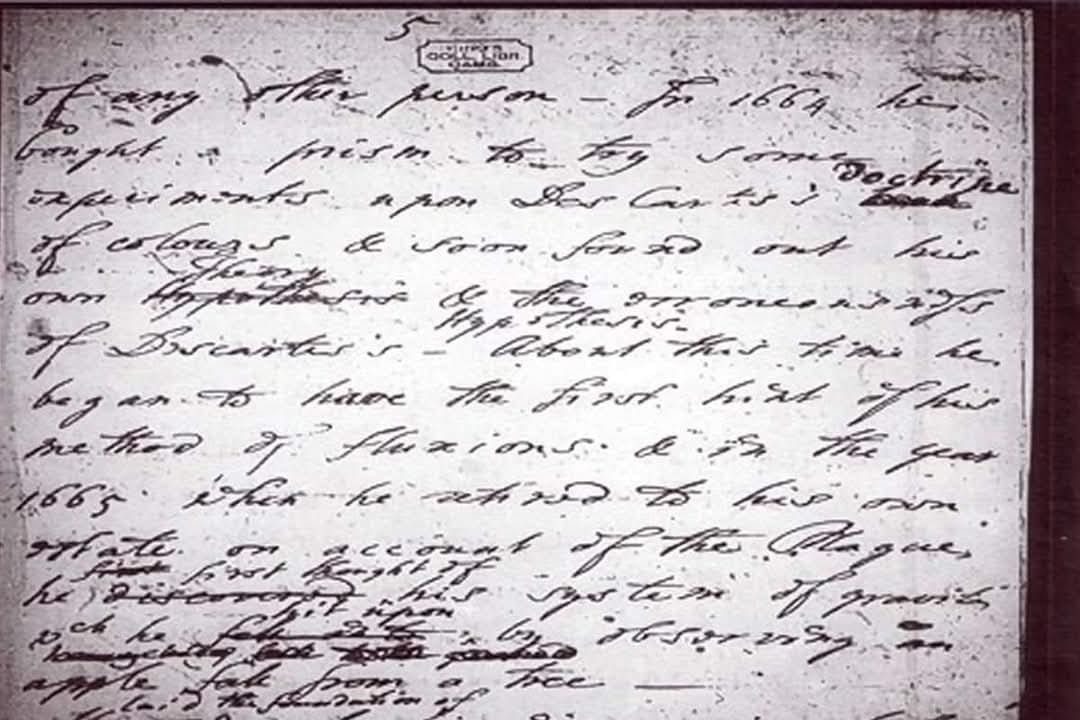 5
KING'S
COLL. LIBR.
CAMB.
of any other person - In 1664 he
bought a prism to try some
doctrine
experiments upon Des Cartes's
of colours & soon found out his
theory
own Hypothesis & the erroneousness
Hypothesis.
of Descartes's - About this time he
began to have the first hint of his
method of fluxions & in the year
1665 when he retired to his own
estate on account of the Plague,
first thought of
he discovered his system of gravity
hit upon
wch he by observing an
apple fall from a tree
laid the foundation of